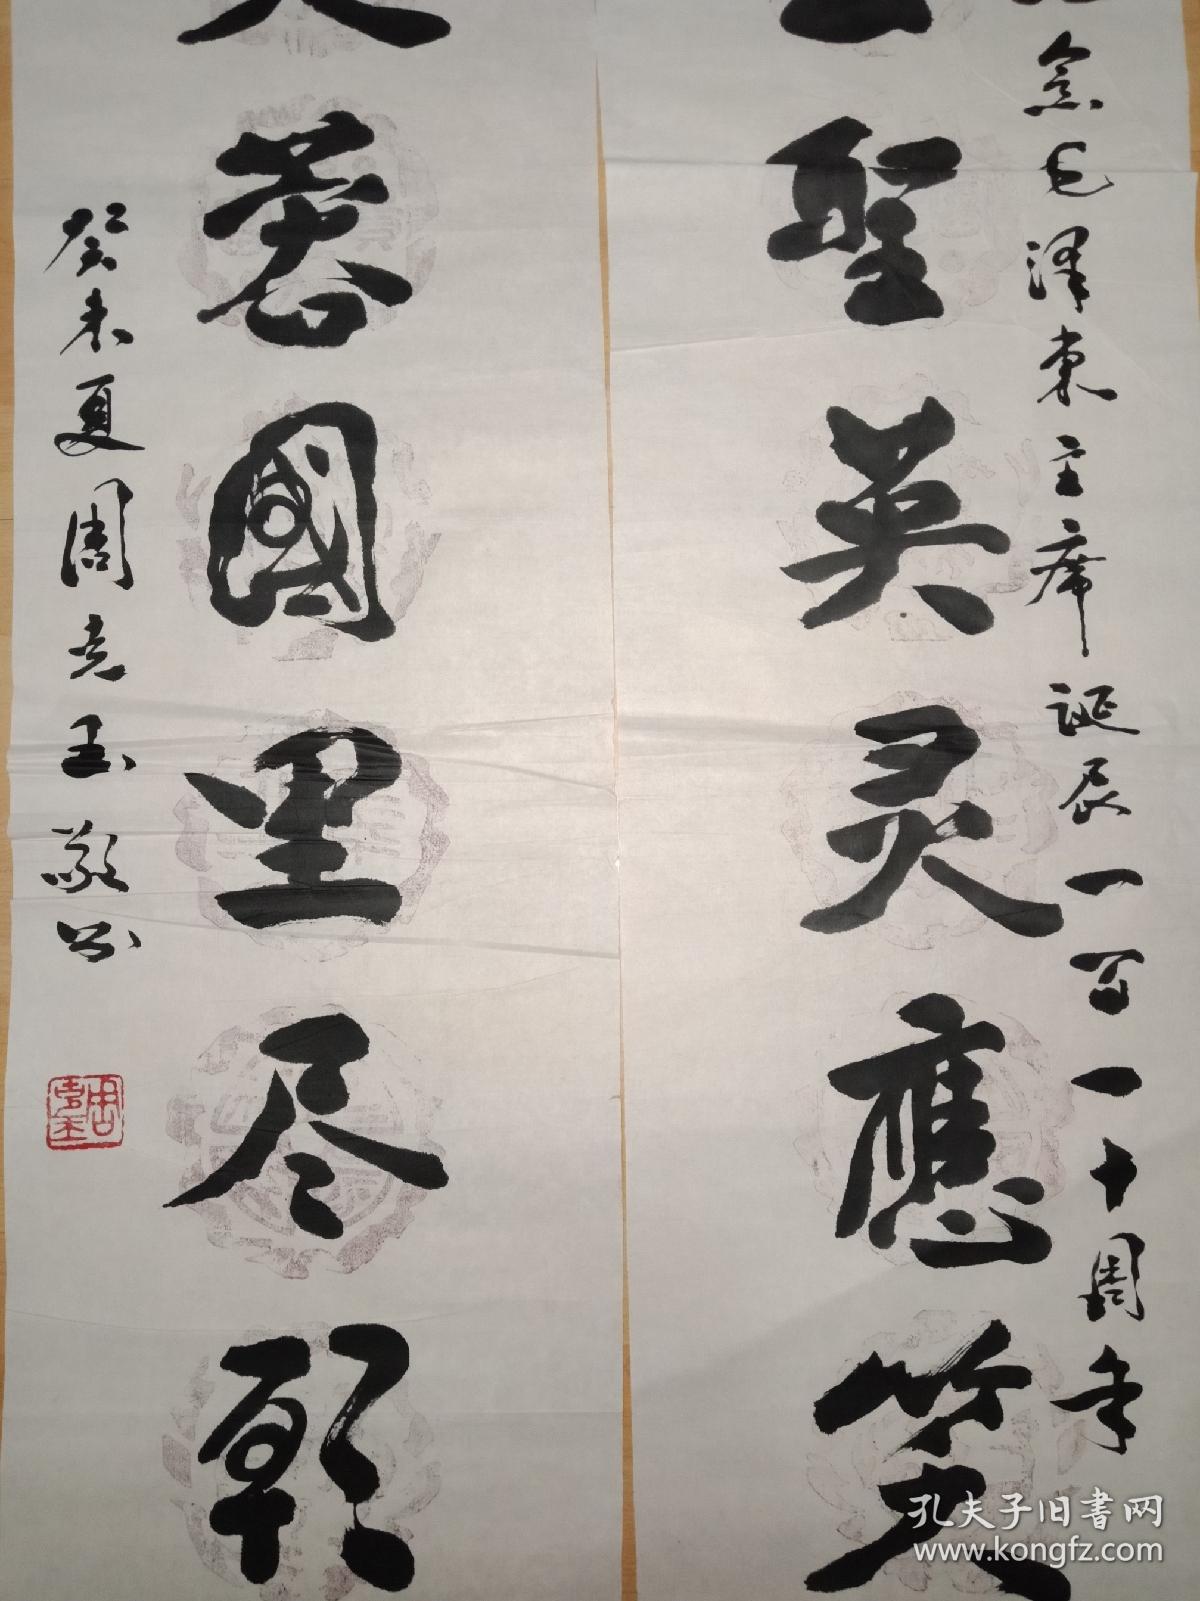 念毛泽東主席诞辰一百一十周年
聖英灵應笑
蓉國里尽朝
癸未夏周克玉敬书
周克玉
孔夫子旧书网
www.kongfz.com